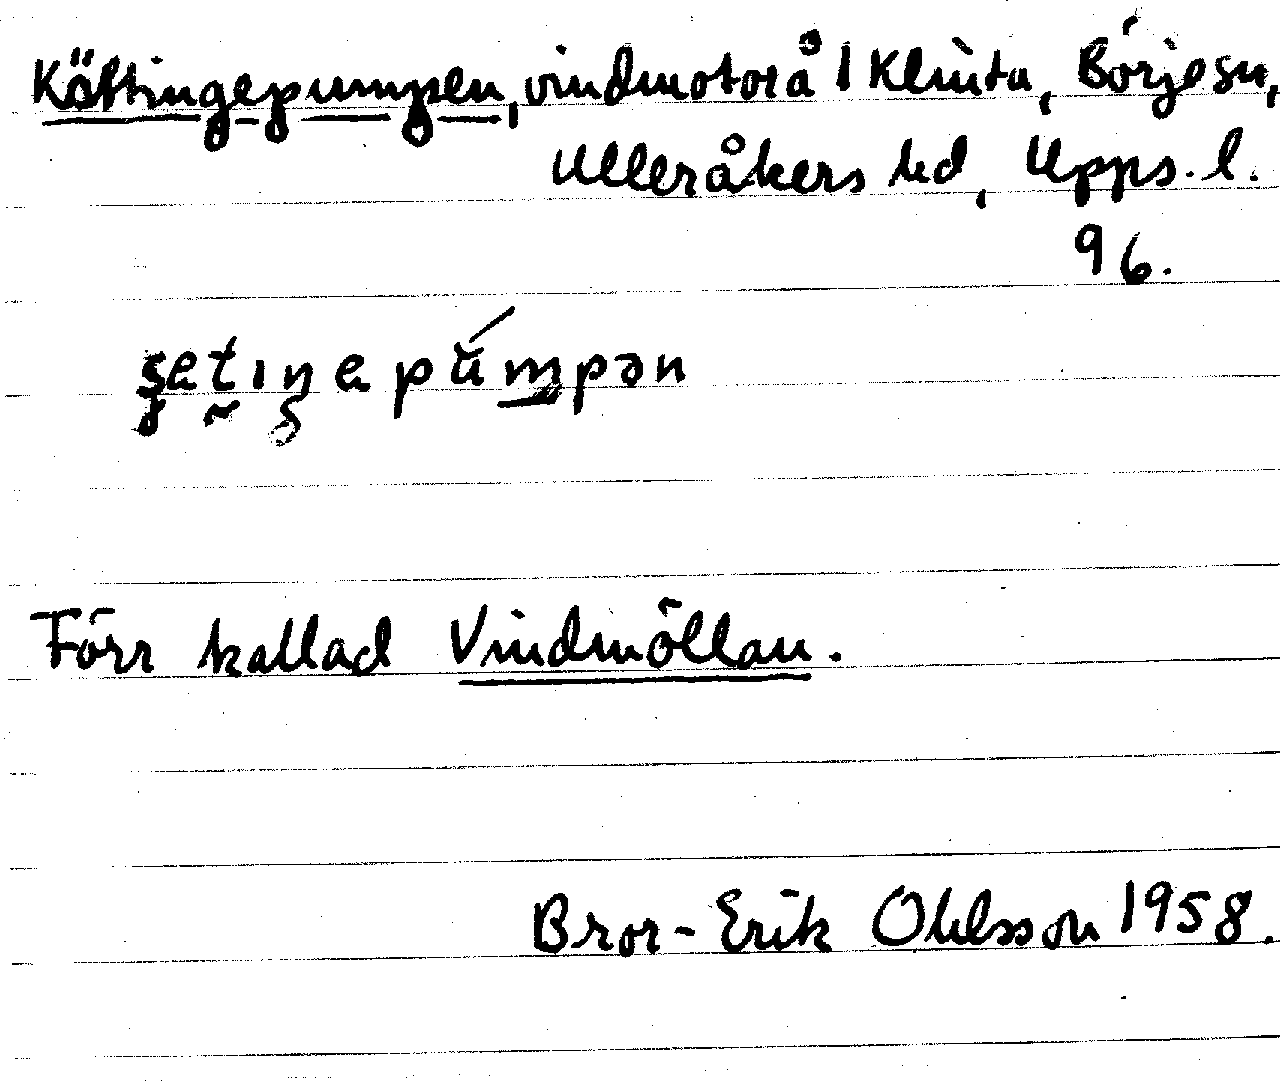 Kättingepumpen, vindmotorå i Klinta, Börje sn,
Ulleråkers hd, Upps. l.
96.
Förr kallad Vindmöllan.
Bror-Erik Ohlsson 1958.